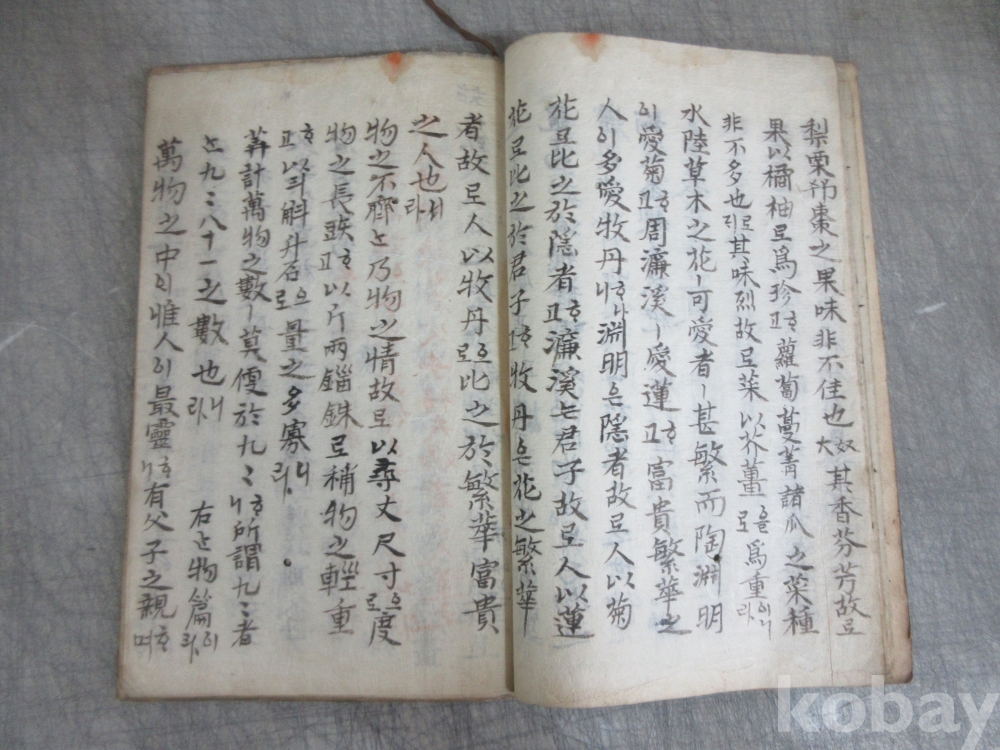 梨栗柿棗之果味非不佳也奴大其香芬芳故로
果以橘柚로爲珍고ᄒᆞ蘿蔔蔓菁諸瓜之菜種
非不多也되로其味烈故로菜以芥薑을로爲重이니라
水陸草木之花ㅣ可愛者ㅣ甚繁而陶淵明
이愛菊고ᄒᆞ周濂溪ㅣ愛蓮고ᄒᆞ富貴繁華之
人이多愛牧丹ᄒᆞ니나淵明은隱者故로人以菊
花로比之於隱者고ᄒᆞ濂溪는君子故로人以蓮
花로比之於君子고ᄒᆞ牧丹은花之繁華
者故로人以牧丹으로比之於繁華富貴
之人也내라
物之不齊는乃物之情故로以尋丈尺寸으로度
物之長短고ᄒᆞ以斤兩錙銖로稱物之輕重
고ᄒᆞ以斗斛升石으로量之多寡니라
筭計萬物之數ㅣ莫便於九〻니ᄒᆞ所謂九〻者
는九〻八十一之數也내라
右는物篇이라
萬物之中의惟人이最靈니ᄒᆞ有父子之親며ᄒᆞ
kobay